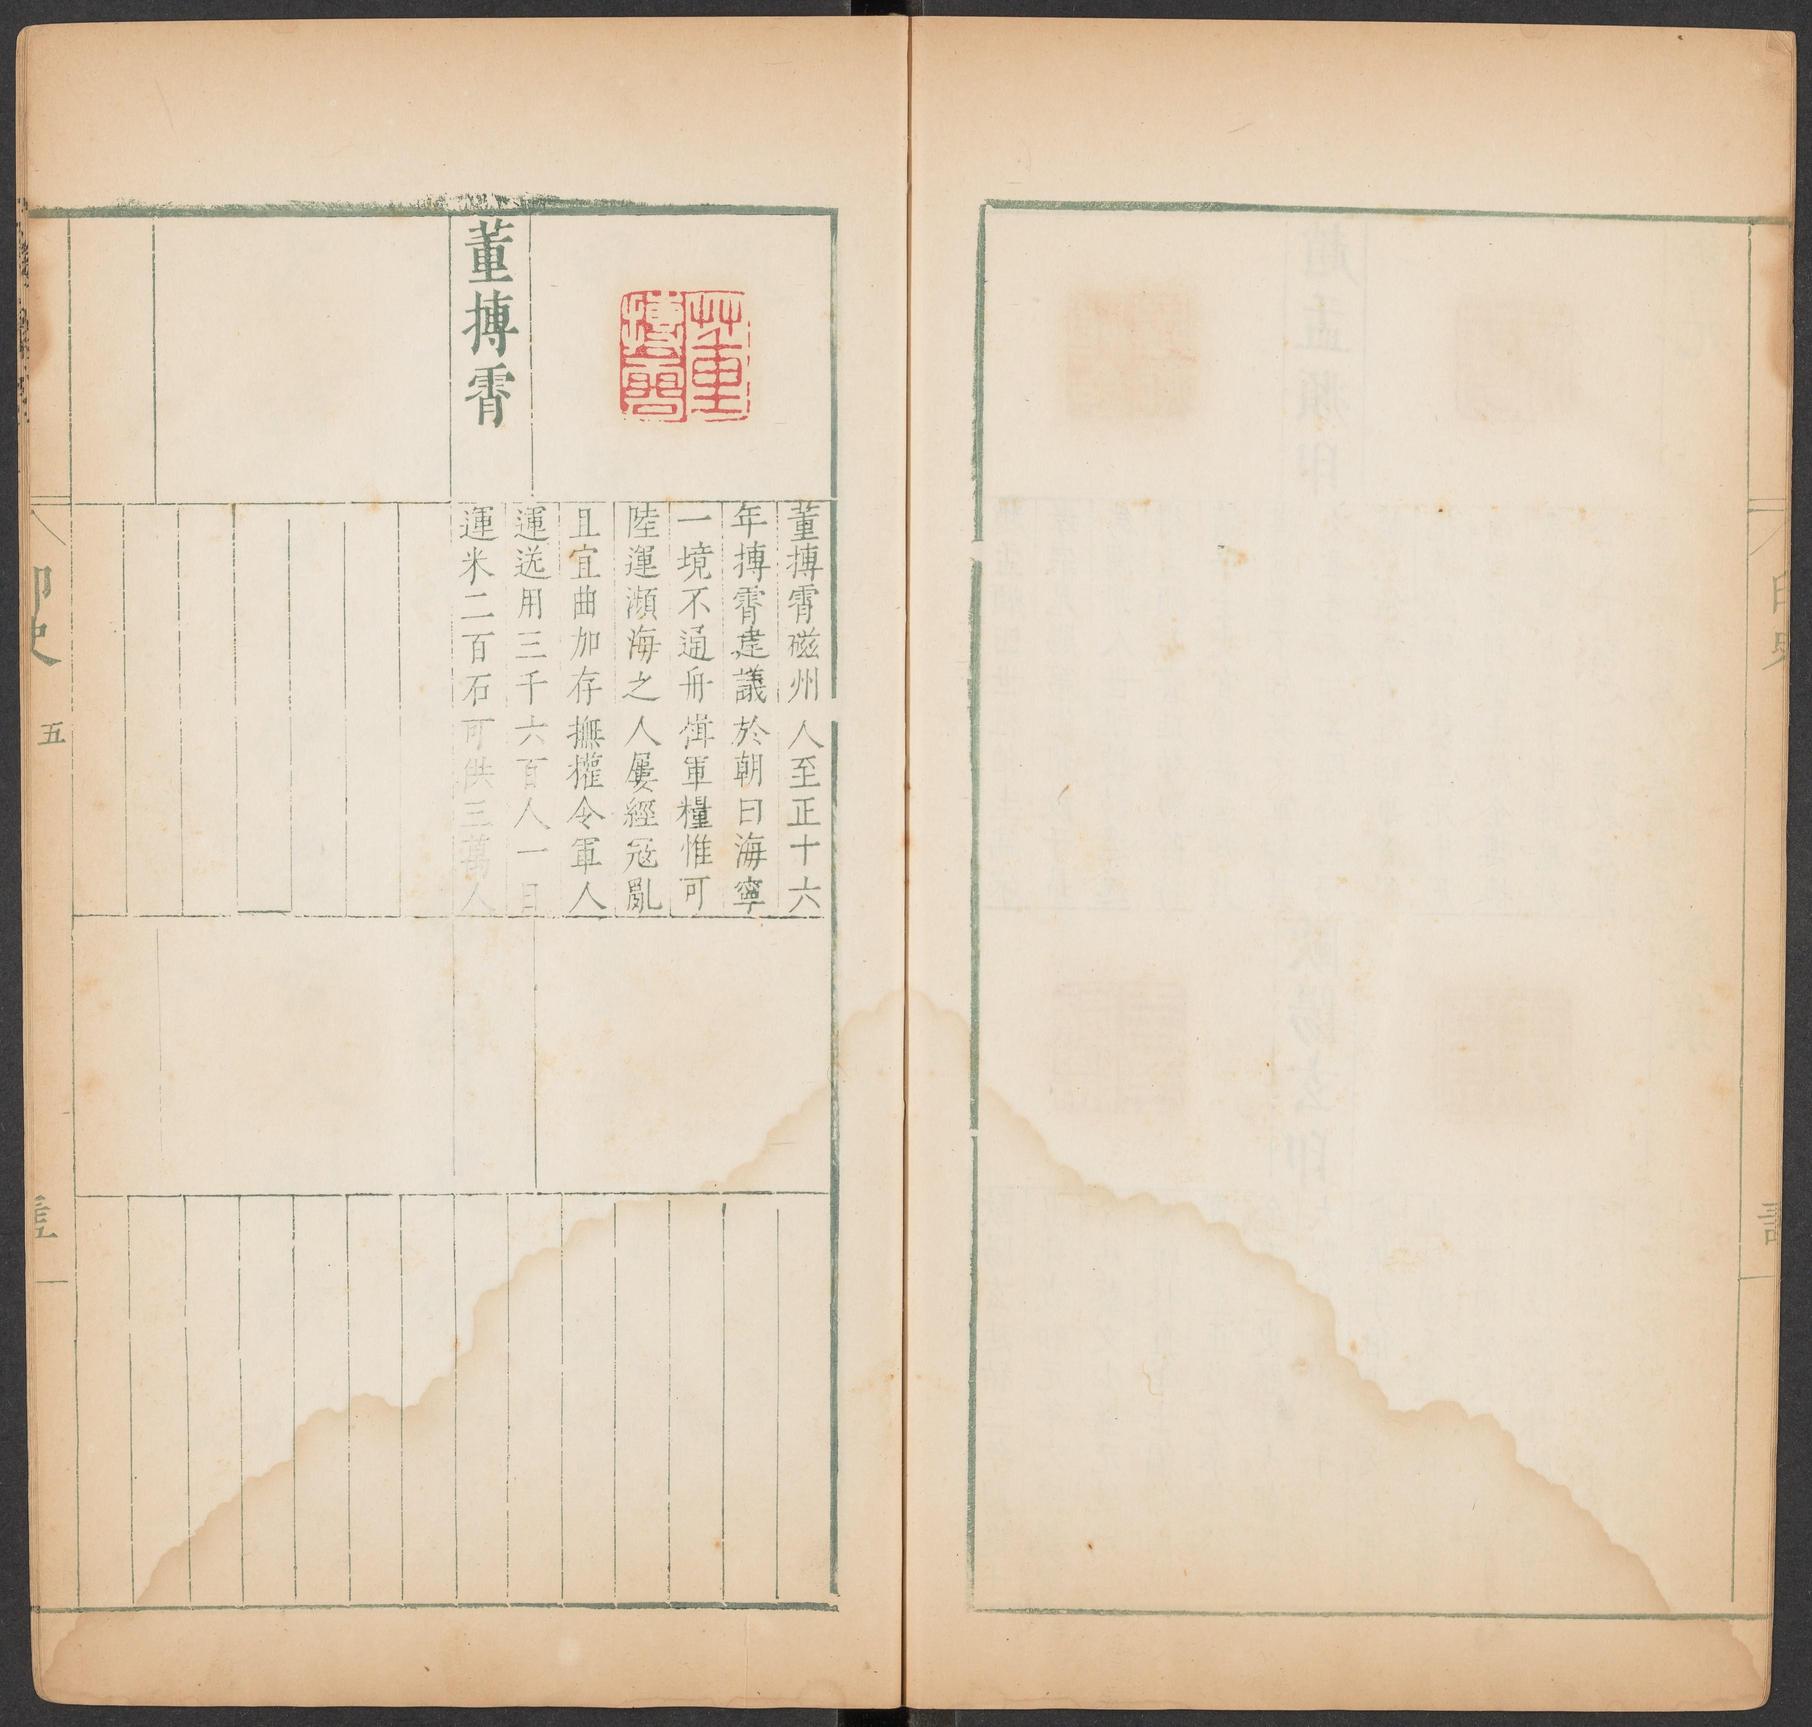 董摶霄
董摶霄磁州人至正十六
年摶霄建議於朝曰海寧
一境不通舟楫軍糧惟可
陸運瀕海之人屢經寇亂
且宜曲加存撫權令軍人
運送用三千六百人一日
運米二百石可供三萬人
印史
五